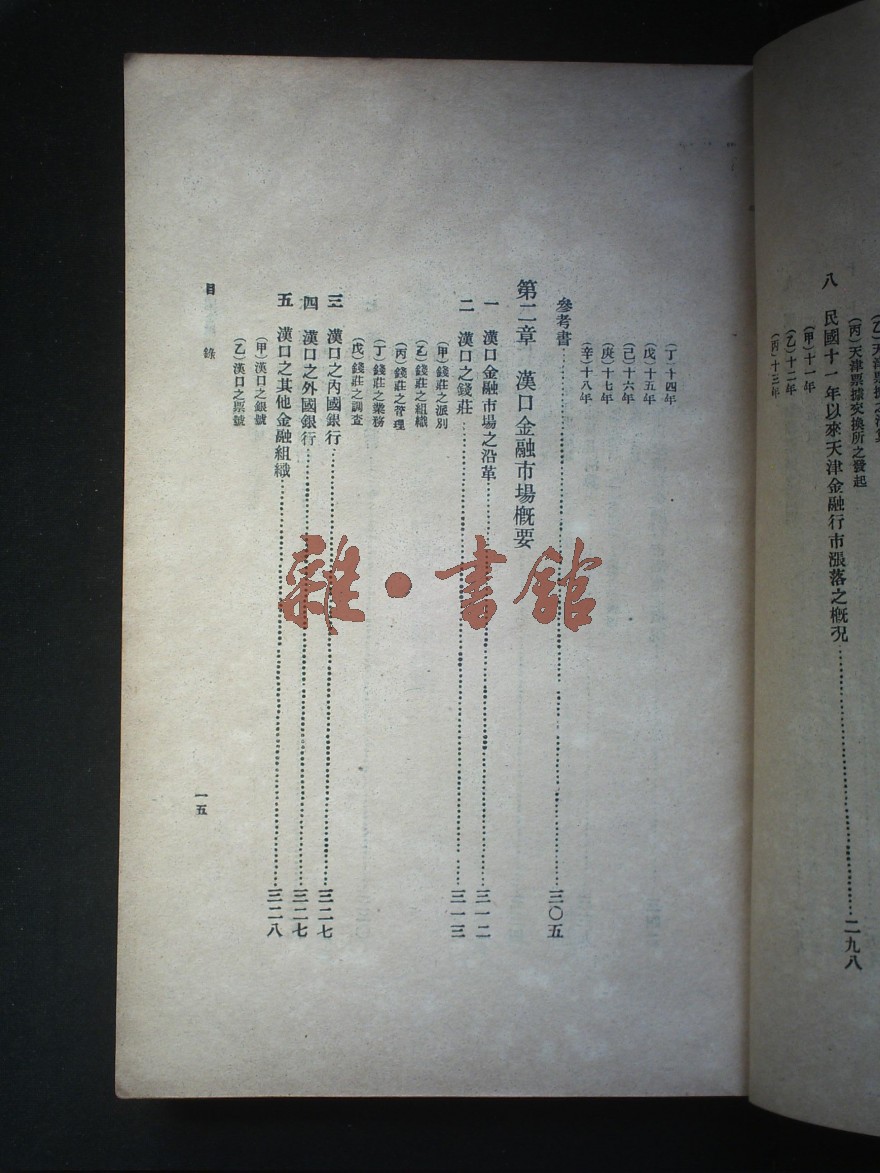 (丙)天津票據交換所之發起
八　民國十一年以來天津金融行市漲落之概況……二九八
(甲)十一年
(乙)十二年
(丙)十三年
(丁)十四年
(戊)十五年
(己)十六年
(庚)十七年
(辛)十八年
參考書……三〇五
第二章　漢口金融市場概要
一　漢口金融市場之沿革……三一二
二　漢口之錢莊……三一三
(甲)錢莊之派別
(乙)錢莊之組織
(丙)錢莊之管理
(丁)錢莊之業務
(戊)錢莊之調查
三　漢口之內國銀行……三二七
四　漢口之外國銀行……三二七
五　漢口之其他金融組織……三二八
(甲)漢口之銀號
(乙)漢口之票號
目錄
一五
雜·書館